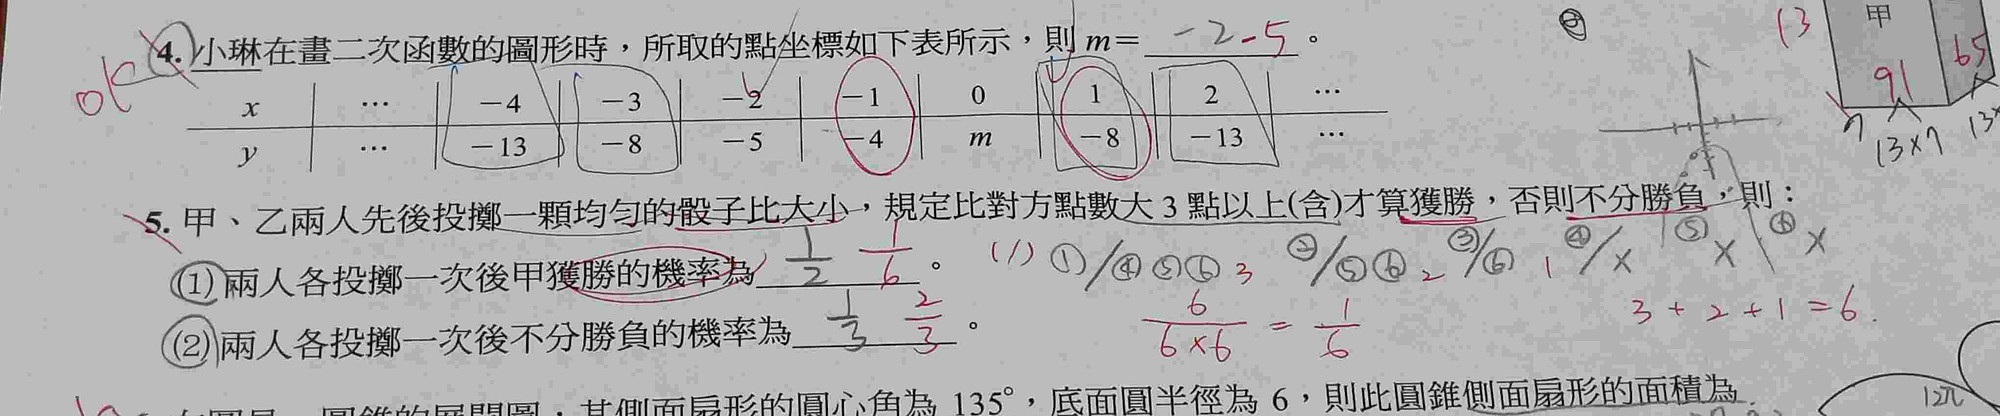 4. 小琳在畫二次函數的圖形時，所取的點坐標如下表所示，則 m= -2 -5 。
ok
x … -4 -3 -2 -1 0 1 2 …
y … -13 -8 -5 -4 m -8 -13 …
甲
13 91 65
7 13×7
5. 甲、乙兩人先後投擲一顆均勻的骰子比大小，規定比對方點數大 3 點以上(含)才算獲勝，否則不分勝負，則：
(1) 兩人各投擲一次後甲獲勝的機率為 1/2 1/6 。
(1) ①/④⑤⑥ 3 ②/⑤⑥ 2 ③/⑥ 1 ④/× ⑤× ⑥×
(2) 兩人各投擲一次後不分勝負的機率為 1/3 2/3 。
6/6×6 = 1/6
3+2+1=6.
其側面扇形的圓心角為 135°，底面圓半徑為 6，則此圓錐側面扇形的面積為
12π